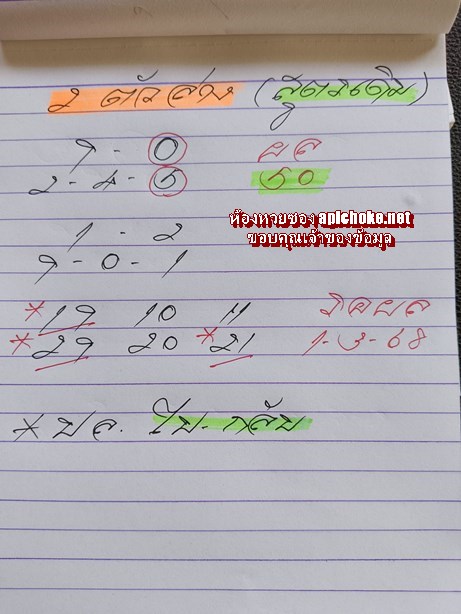 2 ตัวล่าง (สูตรเดิม)
9 - 0 ผล
2 - 4 - 5 50
ห้องหวยซอง apichoke.net
ขอบคุณเจ้าของข้อมูล
1 - 2
9 - 0 - 1
*19 10 11 รอผล
*29 20 *21 1-3-68
* ป ล. ไป-กลับ